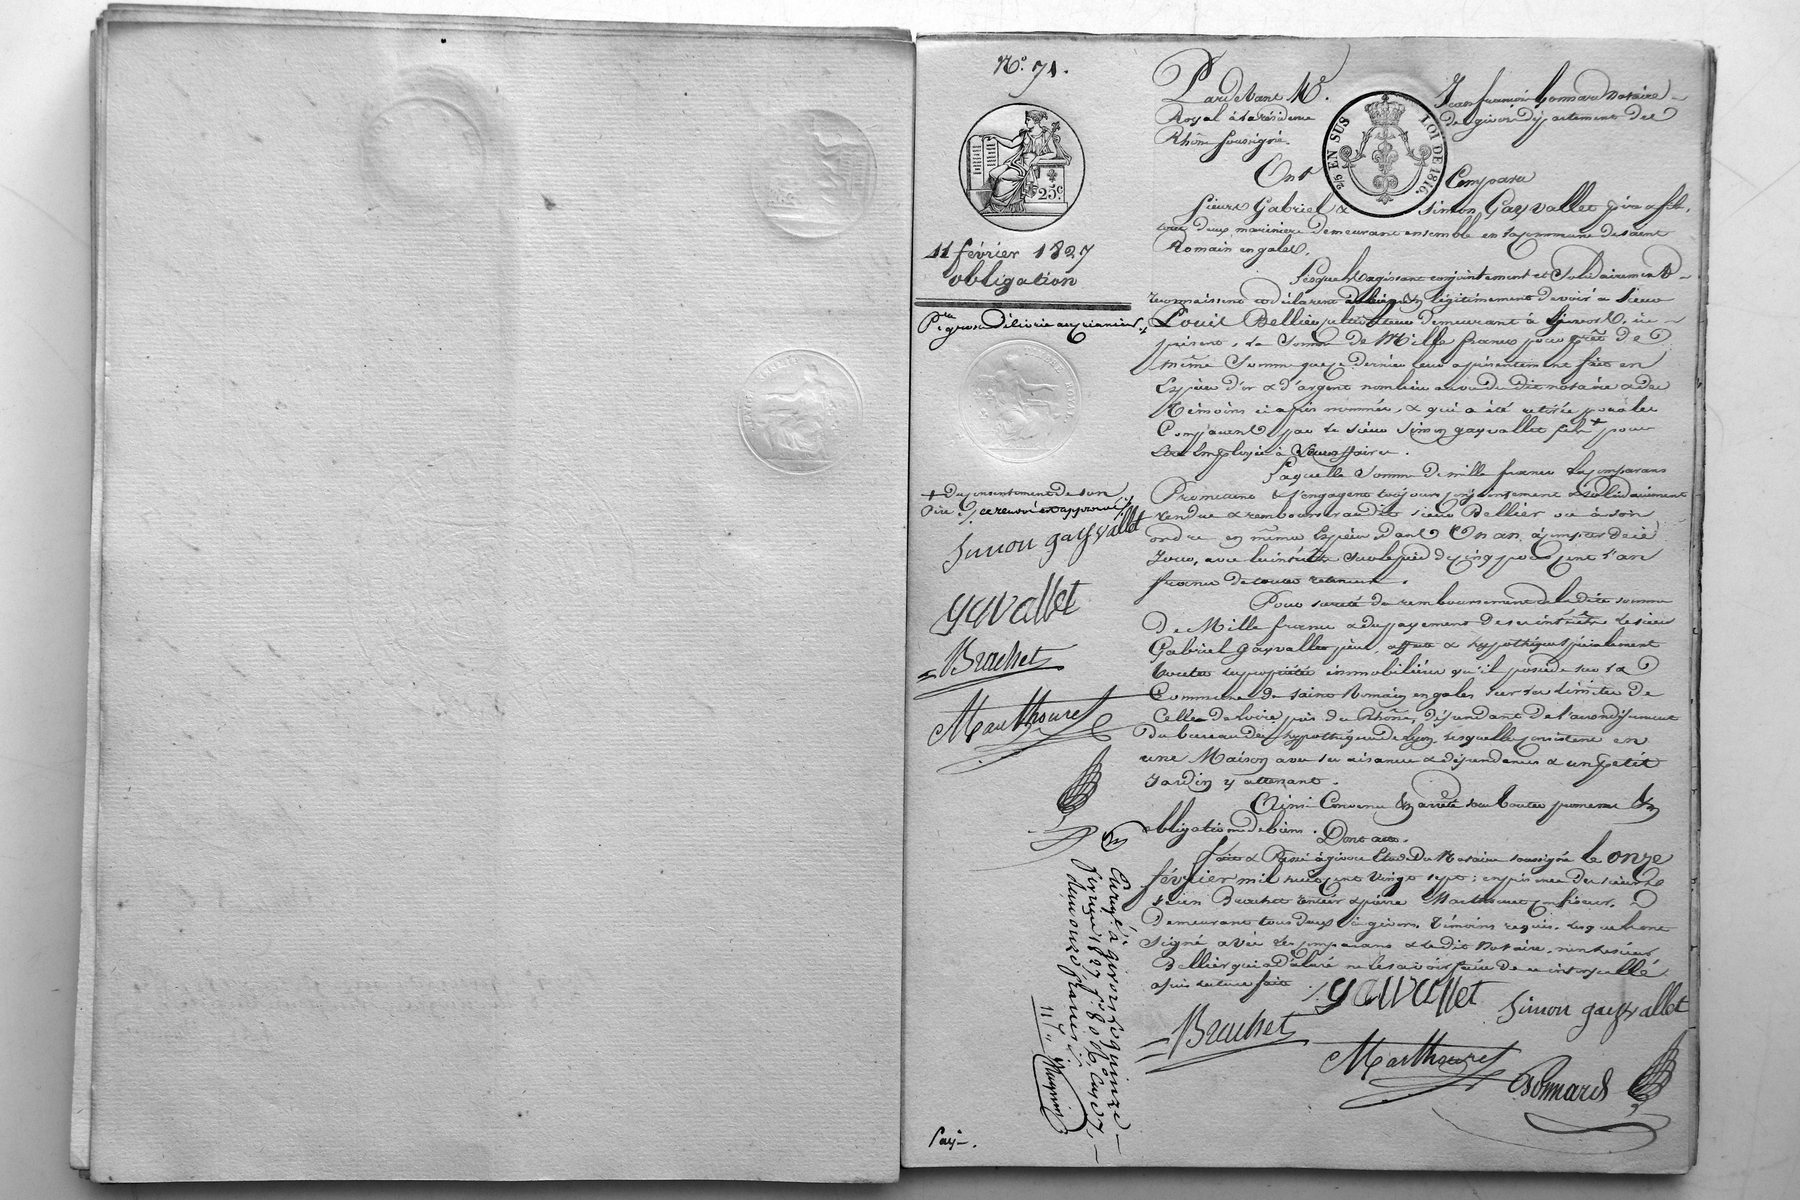 N.° 71.
25.c
11 février 1827
obligation
Pre grosse délivrée au créancier
+ du consentement de son
Père ./. ce renvoi est approuvé ./.
Simon gayvallet
gayvallet
Brachet
Marthouret
Enregé à givors le quinze
février 1827 f.° 80
de onze francs
11
Pay-.
Pardevant Me. Jean françois bonnard notaire
Royal à la résidence de givors département du
Rhône soussigné.
Ont Comparu
2/5 EN SUS LOI DE 1816.
Sieurs Gabriel & Simon Gayvallet père & fils,
tous deux mariniers demeurant ensemble en la commune de saint
Romain en galet,
Lesquels agissant conjointement et Solidairement
reconnaissent & déclarent légitimement devoir à sieur
Louis Bellier demeurant à givors, ici
présent, la Somme de Mille francs pour prêt de
même Somme que ce dernier leur a présentement fait en
Espèces d'or & d'argent nombrées au vu du dit notaire & des
témoins ci après nommés, & qui a été retirée par les
Comparants par le sieur Simon gayvallet fils + pour
être Employée à leurs affaires.
Laquelle Somme de mille francs les comparans
Promettent & s'engagent toujours conjointement & solidairement
rendre & rembourser audit sieur Bellier ou à son
ordre en mêmes Espèces dans Un an, à compter de ce
Jour, avec les intérêts sur le pied de cinq pour cent l'an
francs de toute retenue.
Pour sureté du remboursement de la dite somme
De Mille francs & du payement des intérêts, le sieur
Gabriel Gayvallet père, affecte & hypothèque spécialement
toutes les propriétés immobilières qu'il possède sur la
Commune de saint Romain en galet sur les limites de
Celle de loire près du Rhône, dépendant de l'arrondissement
du bureau des hypothèques de lyon, lesquelles consistent en
une Maison avec ses aisances & dépendances & un petit
Jardin y attenant.
Ainsi Convenu & arrêté sous toutes promesses &
obligations de biens. Dont acte.
fait & Passé à givors Etude du Notaire soussigné le onze
février mil huit cent vingt sept; en présence des sieurs
Brachet rentier & pierre Marthouret confiseur,
Demeurant tous deux à givors, témoins requis, lesquels ont
signé avec les comparans & le dit Notaire, non le sieur
Bellier qui a déclaré ne le savoir faire de ce interpellé
après lecture faite ./.
gayvallet
Simon gayvallet
Brachet
Marthouret
Bonnard